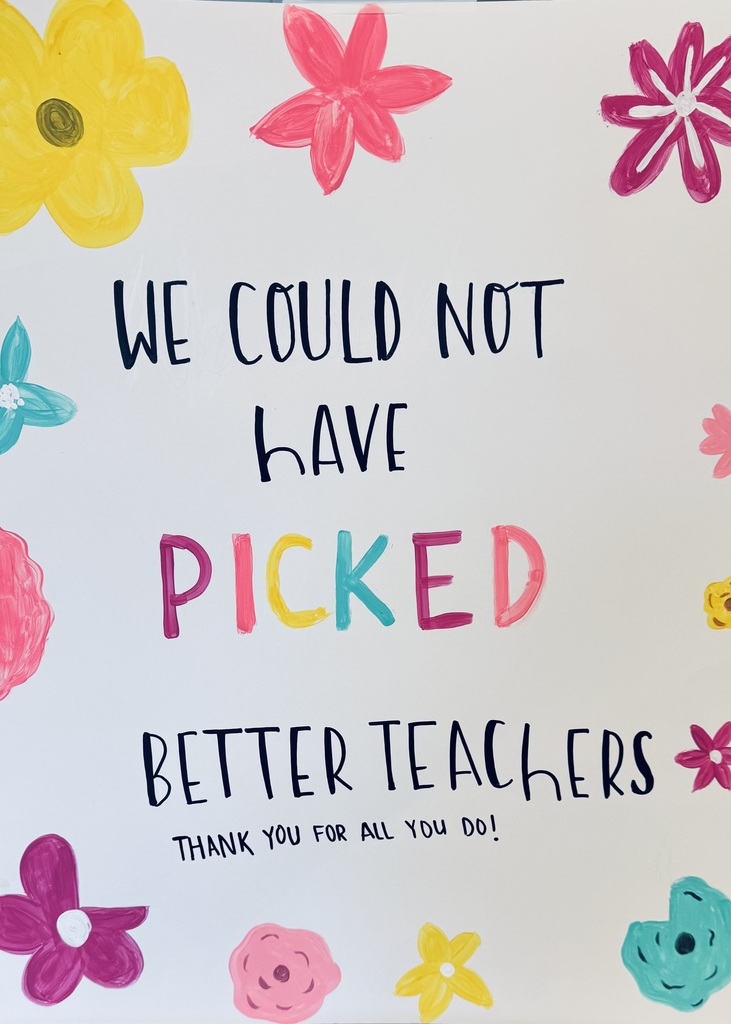 WE COULD NOT
hAVE
PICKED
BETTER TEAChERS
THANK YOU FOR ALL YOU DO!